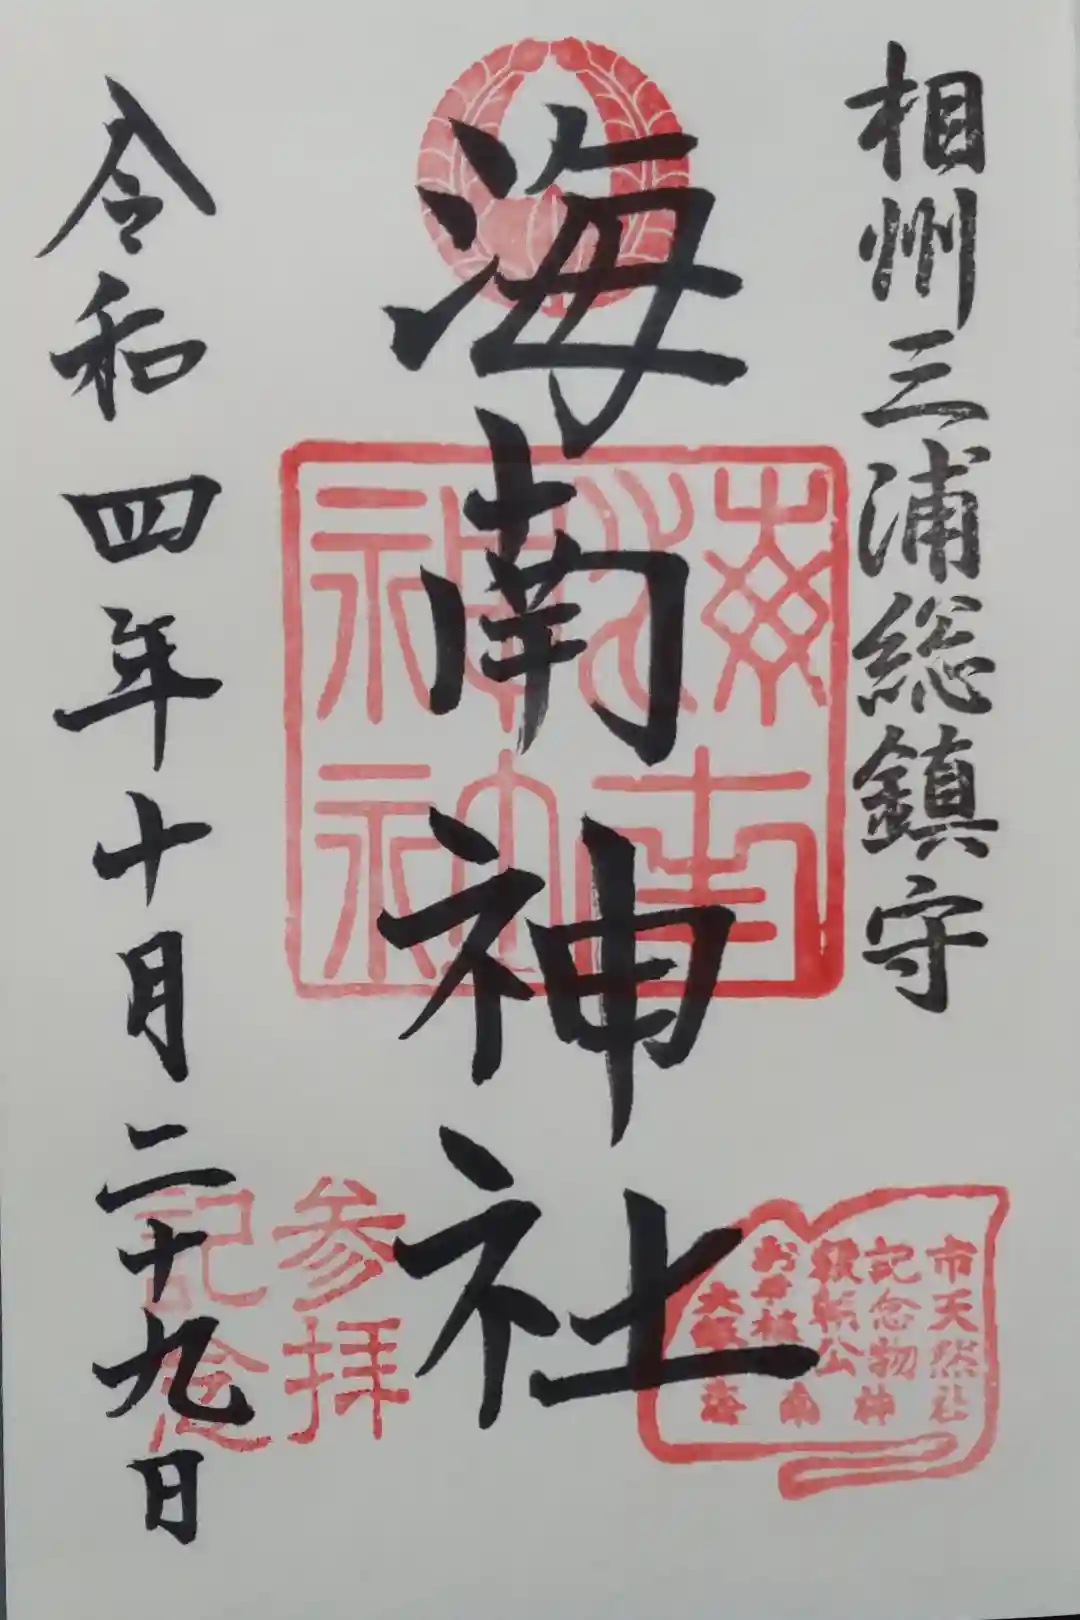 相州三浦総鎮守
海南神社
令和四年十月二十九日
海南
神社
参拝
記念
市天然
記念物
頼朝公
お手植
大銀杏
海南神社